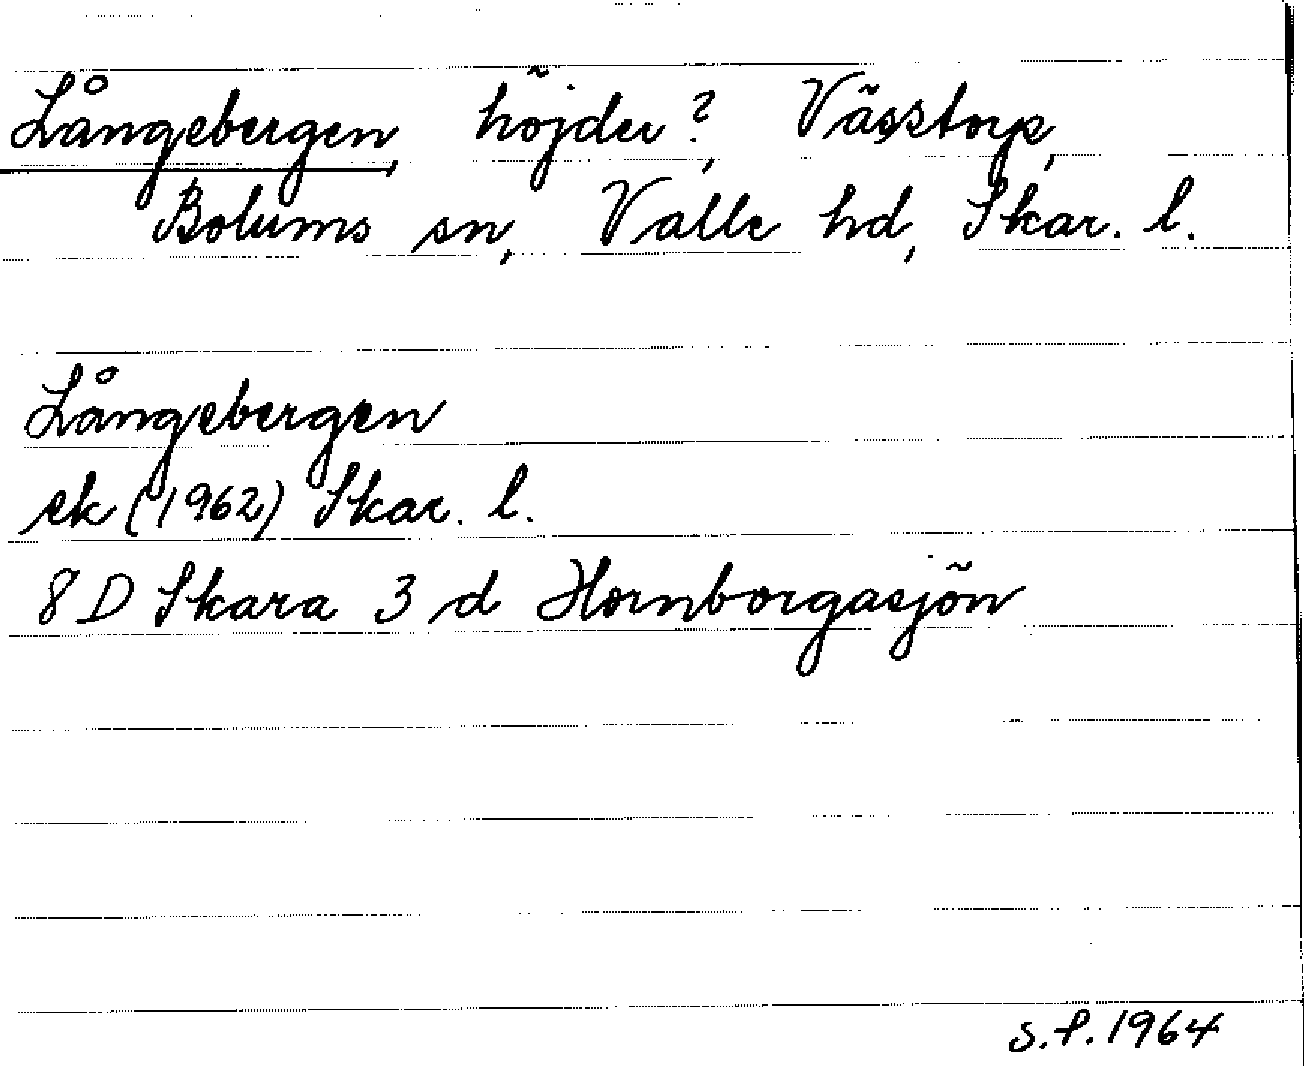 Långebergen, höjder?, Vässtorp,
Bolums sn, Valle hd, Skar. l.
Långebergen
ek (1962) Skar. l.
8 D Skara 3 d Hornborgasjön
S.F. 1964